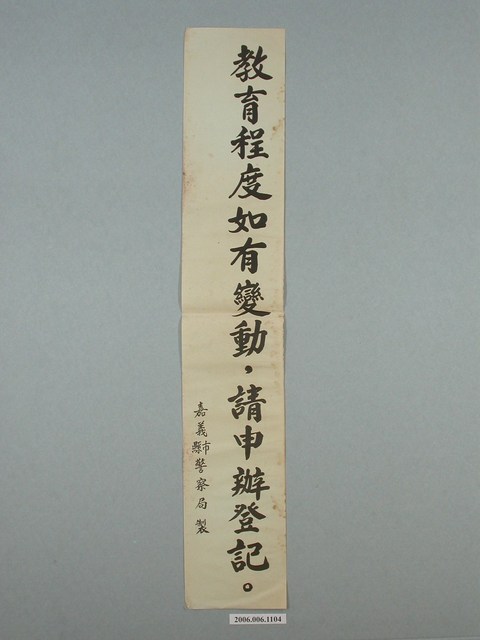 教育程度如有變動，請申辦登記。
嘉義縣市警察局製
2006.006.1104